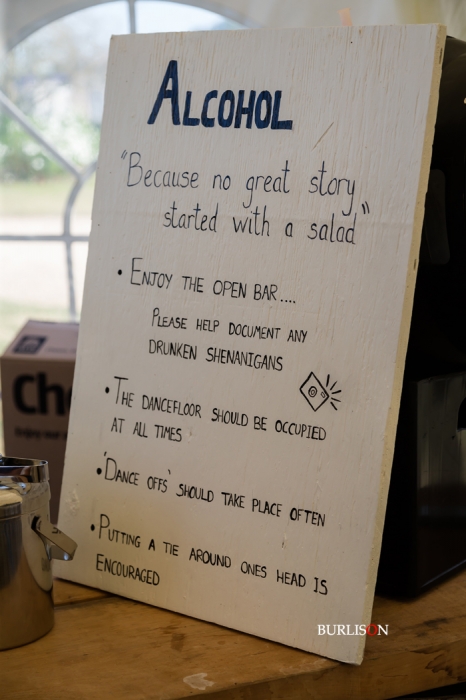 ALCOHOL
"Because no great story
started with a salad"
• ENJOY THE OPEN BAR....
PLEASE HELP DOCUMENT ANY
DRUNKEN SHENANIGANS
• THE DANCEFLOOR SHOULD BE OCCUPIED
AT ALL TIMES
• 'DANCE OFFS' SHOULD TAKE PLACE OFTEN
• PUTTING A TIE AROUND ONES HEAD IS
ENCOURAGED
Ch
Enjoy our
BURLISON